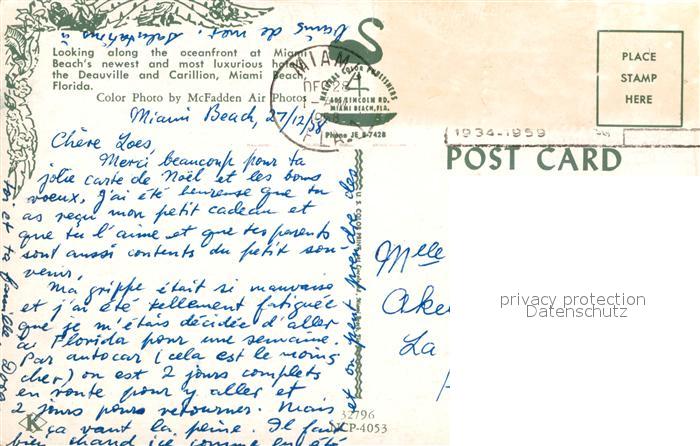 Looking along the oceanfront at Miami
Beach's newest and most luxurious hotels,
the Deauville and Carillion, Miami Beach,
Florida.
Color Photo by McFadden Air Photos
MIAMI
DEC 28
1958
FLA.
NATURAL COLOR PUBLISHERS
405 LINCOLN RD.
MIAMI BEACH, FLA.
Phone JE 8-7428
PLACE
STAMP
HERE
1934-1959
POST CARD
Miami Beach, 27/12/58
Chère Loes,
Merci beaucoup pour ta
jolie carte de Noël et les bons
voeux, j'ai été heureuse que tu
as reçu mon petit cadeau et
que tu l'aime et que tes parents
sont aussi contents du petit sou-
venir.
Ma grippe était si mauvaise
et j'ai été tellement fatiguée
que je m'étais décidée d'aller
à Florida pour une semaine.
Par autocar (cela est le moins
cher) on est 2 jours complets
en route pour y aller et
2 jours pour retourner. Mais
ça vaut la peine. Il fait
bien chaud ici comme en été
et on peut prendre des
toi et ta famille,
Mlle
Ake
La
privacy protection
Datenschutz
K
32796
NCP-4053